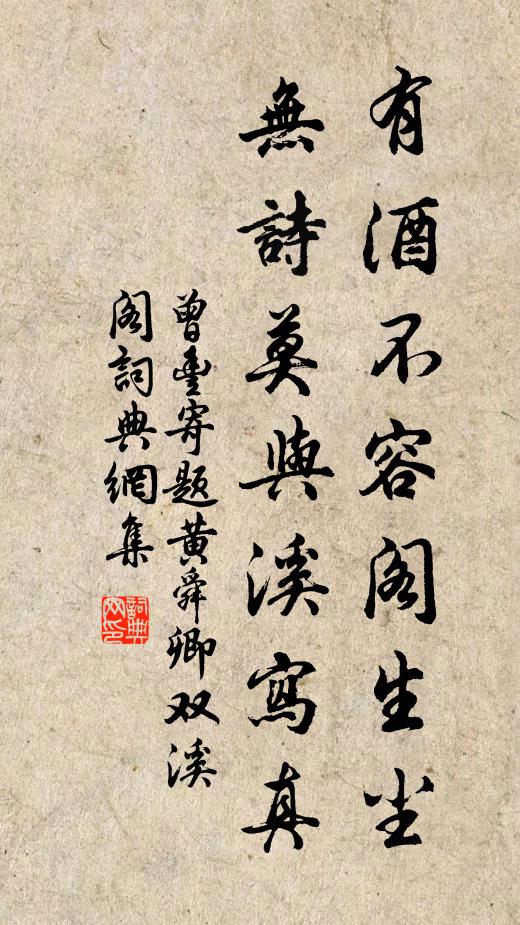 有酒不容阁生尘
無詩莫與溪寫真
曾豊寄題黄舜卿双溪
阁詞典網集
詞典网印